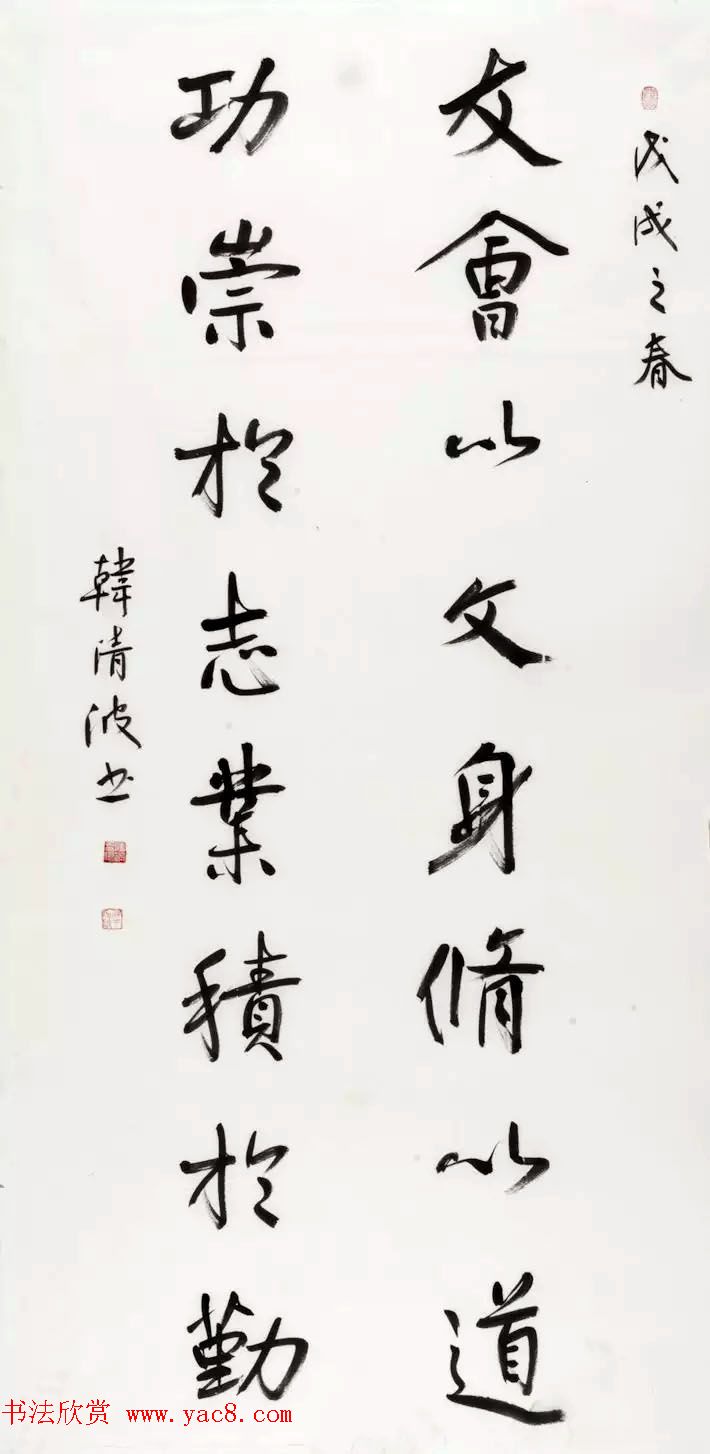 戊戌之春
友會以文身脩以道
功崇於志業積於勤
韓清波书
书法欣赏 www.yac8.com